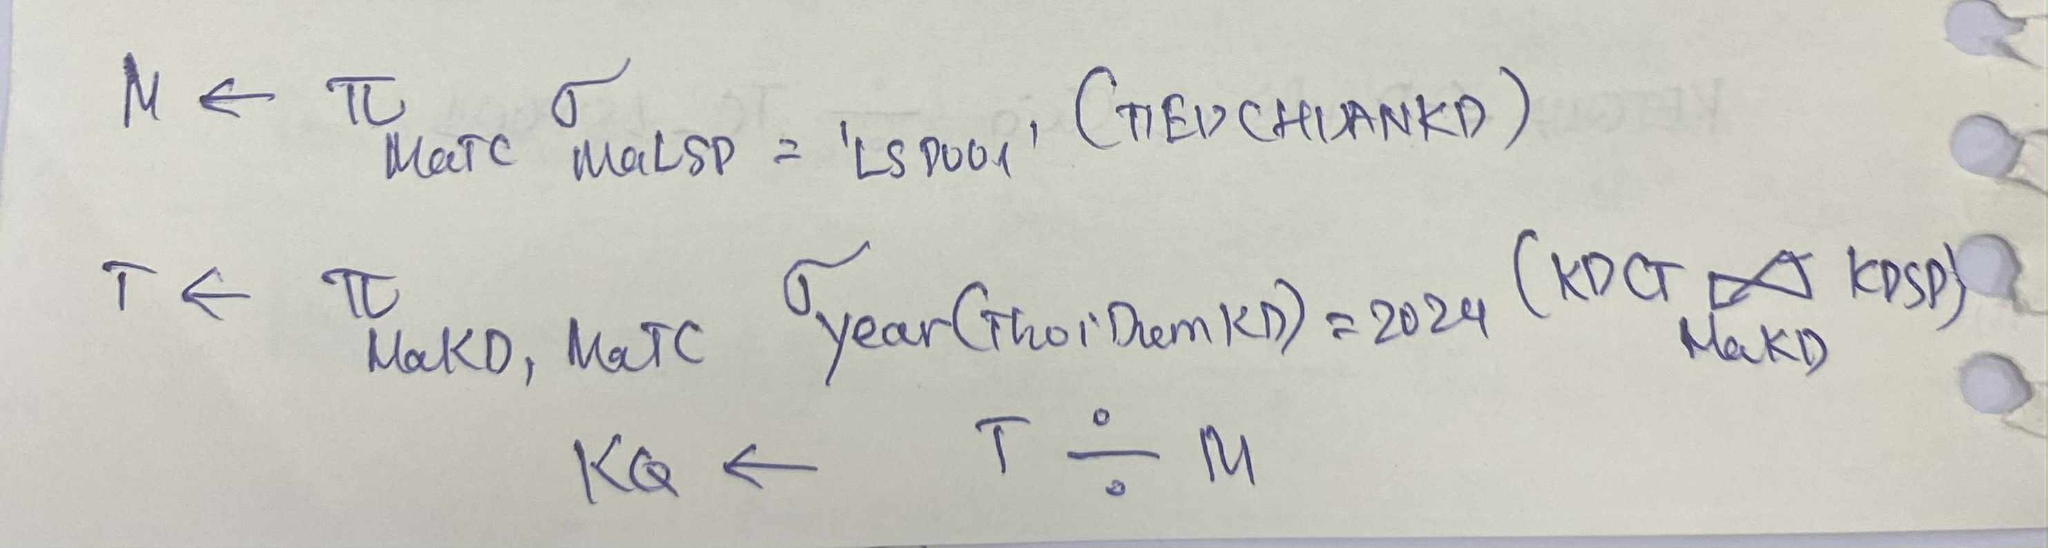 M ← π MaTC σ MaLSP = 'LSP001' (TIEUCHUANKD)
T ← π MaKD, MaTC σ year(ThoiDiemKD) = 2024 (KDCT ⋈ MaKD KDSP)
KQ ← T ÷ M